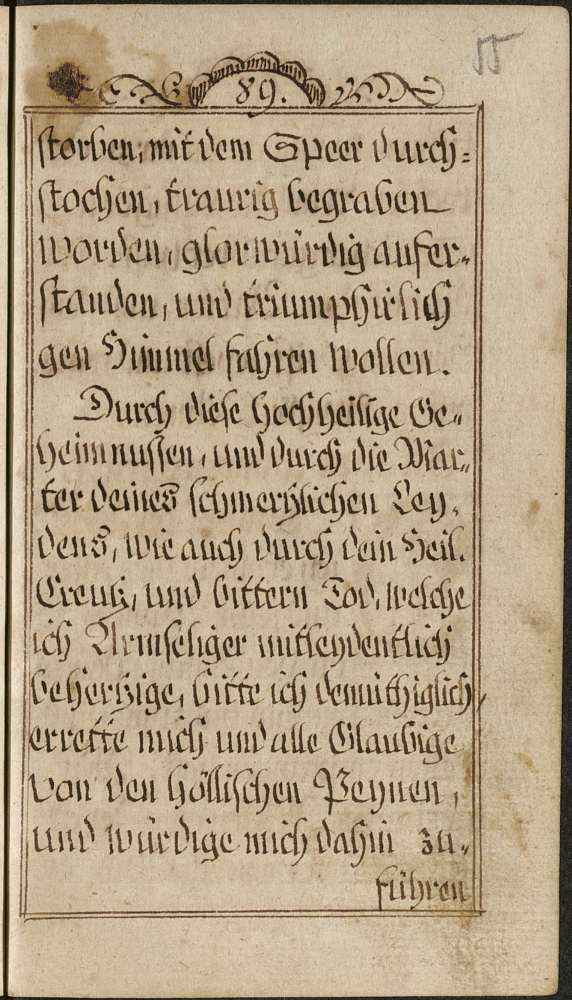 55
89.
storben, mit dem Speer durch=
stochen, traurig begraben
worden, glorwürdig aufer„
standen, und triumphirlich
gen Himmel fahren wollen.
Durch diese hochheilige Ge„
heimnussen, und durch die Mar„
ter deines schmertzlichen Ley„
dens, wie auch durch dein Heil.
Creutz, und bittern Tod, welche
ich Armseliger mitleydentlich
behertzige, bitte ich demüthiglich,
errette mich und alle Glaubige
von den höllischen Peynen,
und würdige mich dahin zu„
führen